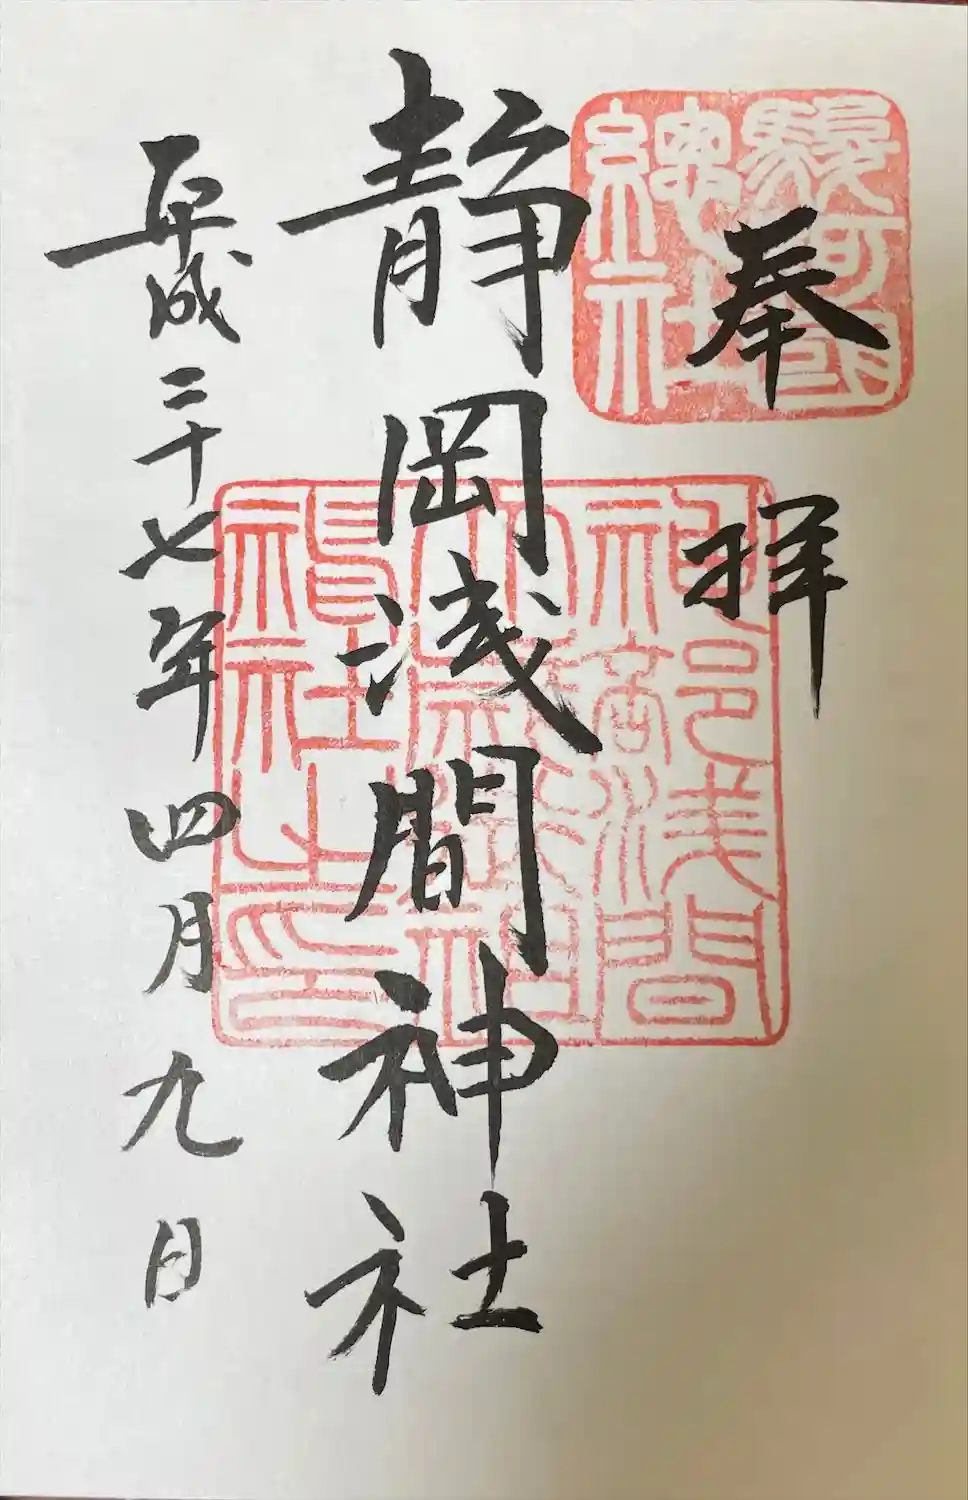 駿河國
總社
奉拝
静岡浅間神社
神部浅間
大歳御祖
神社之印
平成二十七年四月九日